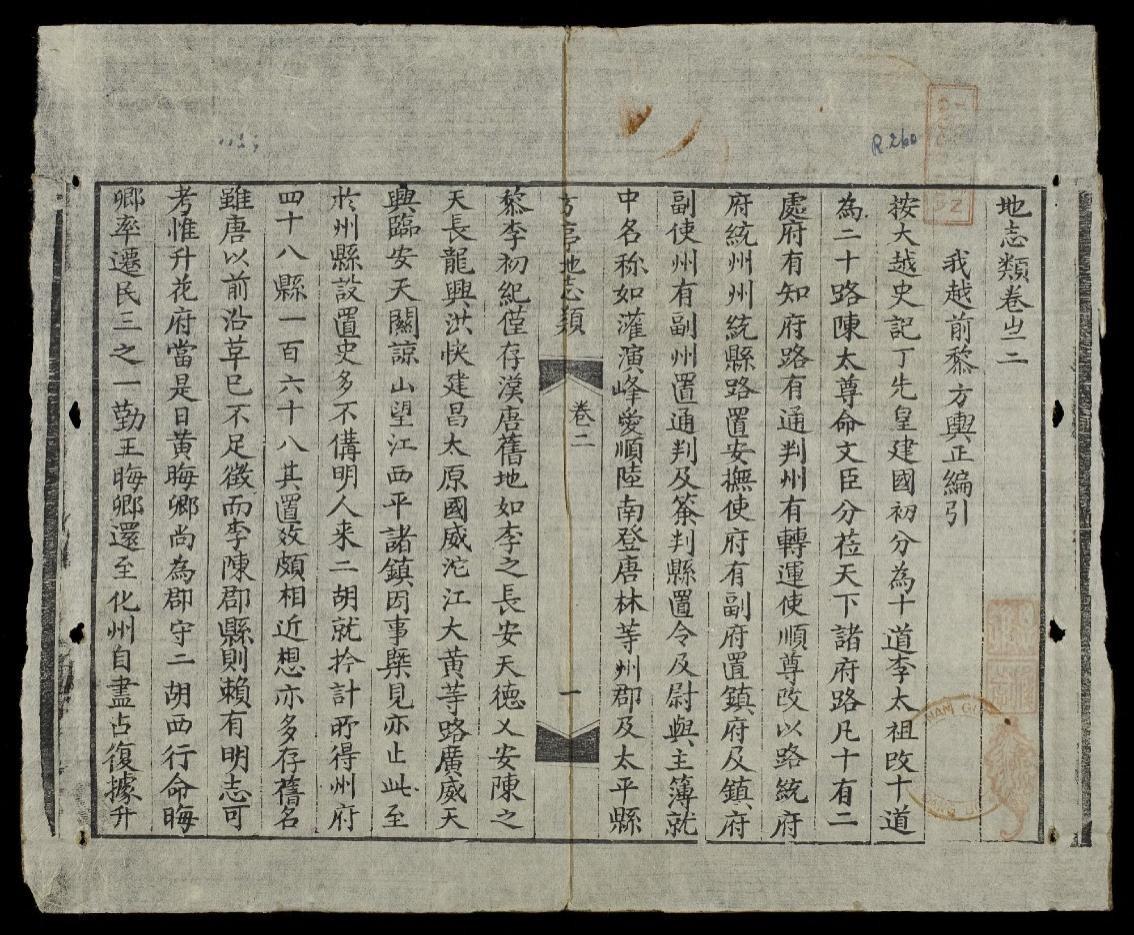 地志類卷㞢二
我越前黎方輿正編引
按大越史記丁先皇建國初分為十道李太祖改十道
為二十路陳太尊命文臣分莅天下諸府路凡十有二
處府有知府路有通判州有轉運使順尊改以路統府
府統州州統縣路置安撫使府有副府置鎮府及鎮府
副使州有副州置通判及簽判縣置令及尉與主簿就
中名称如灌演峰愛順陸南登唐林等州郡及太平縣
方亭地志類
卷二
一
黎李初紀僅存漢唐舊地如李之長安天德乂安陳之
天長龍興洪快建昌太原國威沱江大黄等路廣威天
興臨安天關諒山望江西平諸鎮因事槩見亦止此至
於州縣設置史多不備明人来二胡就擒計所得州府
四十八縣一百六十八其置效頗相近想亦多存舊名
雖唐以前沿革已不足徵而李陳郡縣則賴有明志可
考惟升花府當是日黄晦卿尚為郡守二胡西行命晦
卿率遷民三之一勤王晦卿還至化州自盡占復據升
R.260